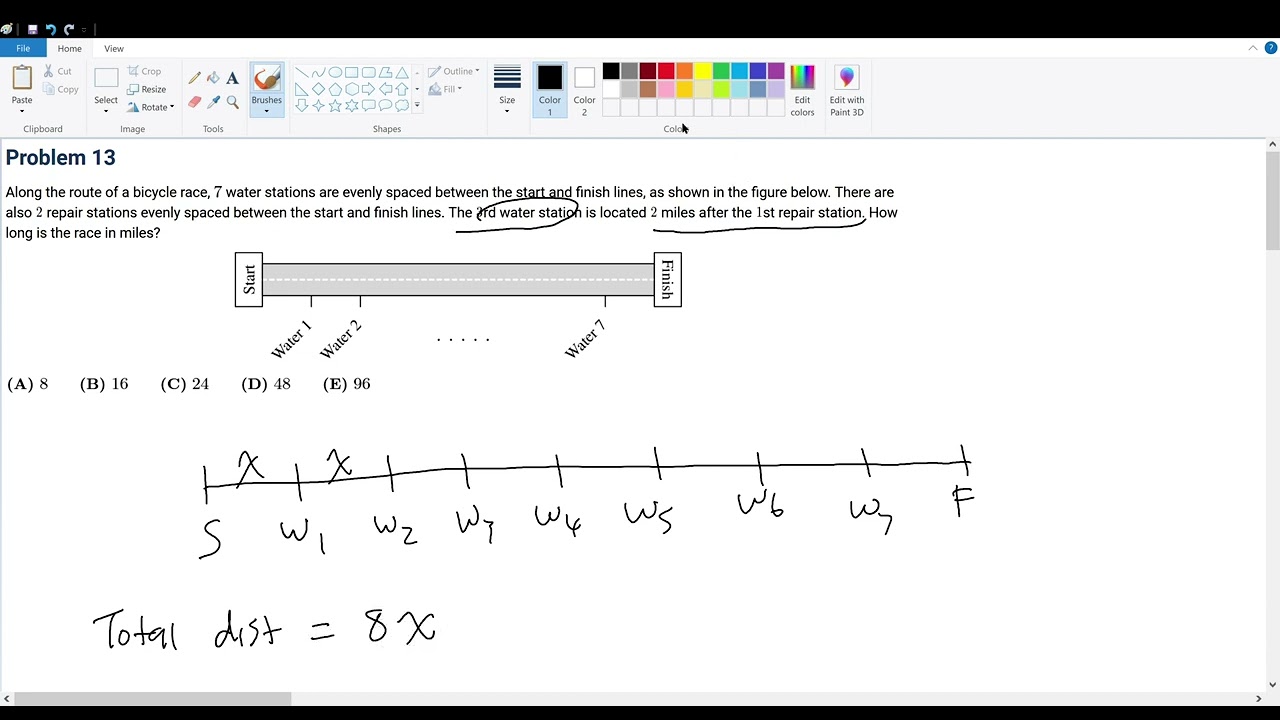 File Home View
Paste Cut Copy Select Crop Resize Rotate A Brushes Outline Fill Size Color 1 Color 2 Edit colors Edit with Paint 3D
Clipboard Image Tools Shapes Colors
Problem 13
Along the route of a bicycle race, 7 water stations are evenly spaced between the start and finish lines, as shown in the figure below. There are
also 2 repair stations evenly spaced between the start and finish lines. The 3rd water station is located 2 miles after the 1st repair station. How
long is the race in miles?
Start Finish
Water 1 Water 2 ..... Water 7
(A) 8 (B) 16 (C) 24 (D) 48 (E) 96
x x
S W1 W2 W3 W4 W5 W6 W7 F
Total dist = 8x